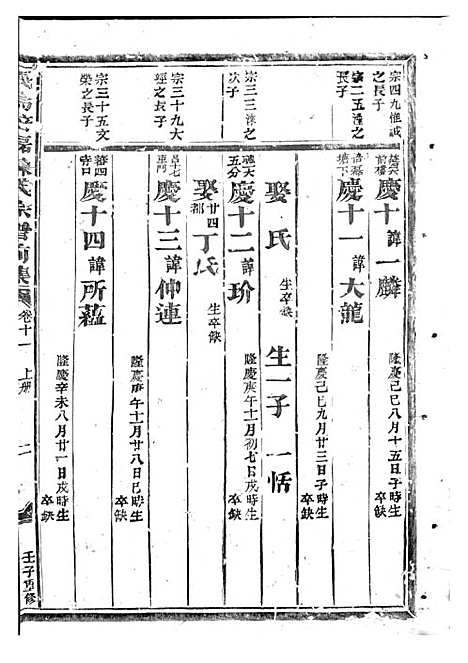 宗四九惟誠
之長子
慶十諱一麟
隆慶己巳八月十五日子時生
卒缺
肇二五濩之
長子
塘下
慶十一諱大龍
隆慶己巳九月廿三日子時生
卒缺
娶氏生卒缺
生一子一恬
宗三三涞之
次子
五分
慶十二諱玠
隆慶庚午十月初七日戌時生
卒缺
娶廿四都丁氏生卒缺
宗三十九大
經之長子
慶十三諱仲連
隆慶庚午十二月廿八日巳時生
卒缺
宗三十五文
榮之長子
慶十四諱所蘊
隆慶辛未八月廿一日戌時生
卒缺
氏宗譜前集
卷十一
上册
二
壬子重修